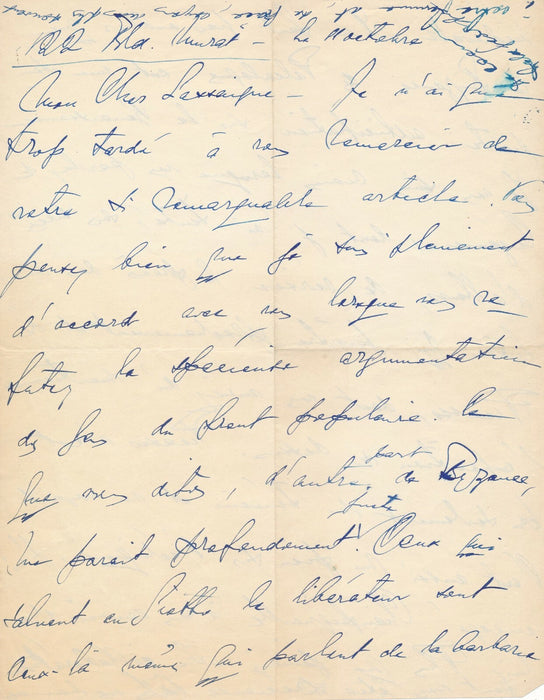 122 Bld. Murat - le 11 octobre
Mon Cher Lassaigne - Je n'ai que
trop tardé à vous remercier de
votre si remarquable article. Vous
pensez bien que je suis pleinement
d'accord avec vous lorsque vous ré
futez la spécieuse argumentation
des gens du front populaire. Ce
que vous dites, d'autre part de Byzance,
me parait profondément juste. Ceux qui
saluent en Giotto le libérateur sont
ceux-là même qui parlent de la barbarie